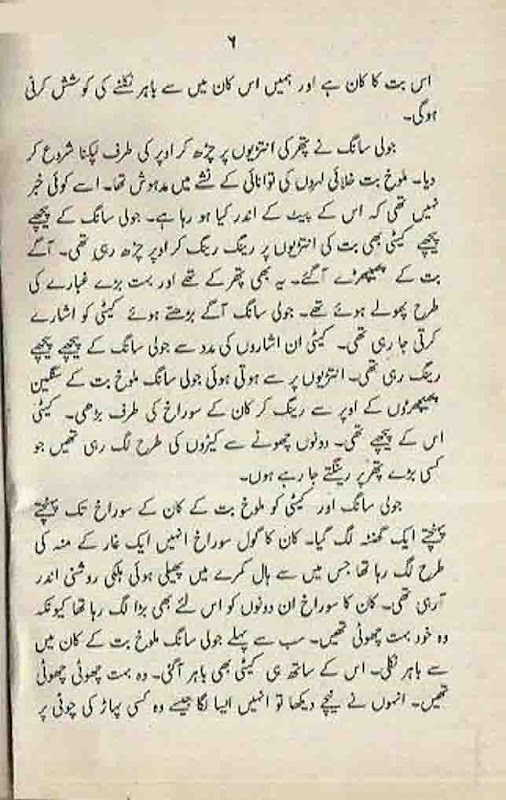 ۶
اس بت کا کان ہے اور ہمیں اس کان میں سے باہر نکلنے کی کوشش کرنی
ہوگی۔
جولی سانگ نے پتھر کی انتڑیوں پر چڑھ کر اوپر کی طرف لپکنا شروع کر
دیا۔ ملوخ بت خلائی لہروں کی توانائی کے نشے میں مدہوش تھا۔ اسے کوئی خبر
نہیں تھی کہ اس کے پیٹ کے اندر کیا ہو رہا ہے۔ جولی سانگ کے پیچھے
پیچھے کیٹی بھی بت کی انتڑیوں پر رینگ رینگ کر اوپر چڑھ رہی تھی۔ آگے
بت کے پھیپھڑے آگئے۔ یہ بھی پتھر کے تھے اور بہت بڑے غبارے کی
طرح پھولے ہوئے تھے۔ جولی سانگ آگے بڑھتے ہوئے کیٹی کو اشارے
کرتی جا رہی تھی۔ کیٹی ان اشاروں کی مدد سے جولی سانگ کے پیچھے پیچھے
رینگ رہی تھی۔ انتڑیوں پر سے ہوتی ہوئی جولی سانگ ملوخ بت کے سنگین
پھیپھڑوں کے اوپر سے رینگ کر کان کے سوراخ کی طرف بڑھی۔ کیٹی
اس کے پیچھے تھی۔ دونوں چھوٹے سے کیڑوں کی طرح لگ رہی تھیں جو
کسی بڑے پتھر پر رینگتے جا رہے ہوں۔
جولی سانگ اور کیٹی کو ملوخ بت کے کان کے سوراخ تک پہنچتے
پہنچتے ایک گھنٹہ لگ گیا۔ کان کا گول سوراخ انہیں ایک غار کے منہ کی
طرح لگ رہا تھا جس میں سے ہال کمرے میں پھیلی ہوئی ہلکی روشنی اندر
آرہی تھی۔ کان کا سوراخ ان دونوں کو اس لئے بھی بڑا لگ رہا تھا کیونکہ
وہ خود بہت چھوٹی تھیں۔ سب سے پہلے جولی سانگ ملوخ بت کے کان میں
سے باہر نکلی۔ اس کے ساتھ ہی کیٹی بھی باہر آگئی۔ وہ بہت چھوٹی چھوٹی
تھیں۔ انہوں نے نیچے دیکھا تو انہیں ایسا لگا جیسے وہ کسی پہاڑ کی چوٹی پر